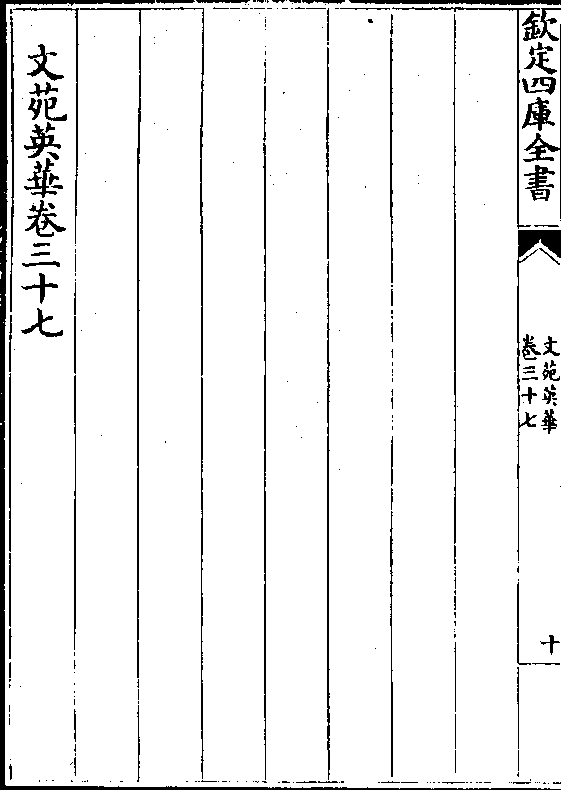 欽定四庫全書
文苑英華
卷三十七
十
文苑英華卷三十七